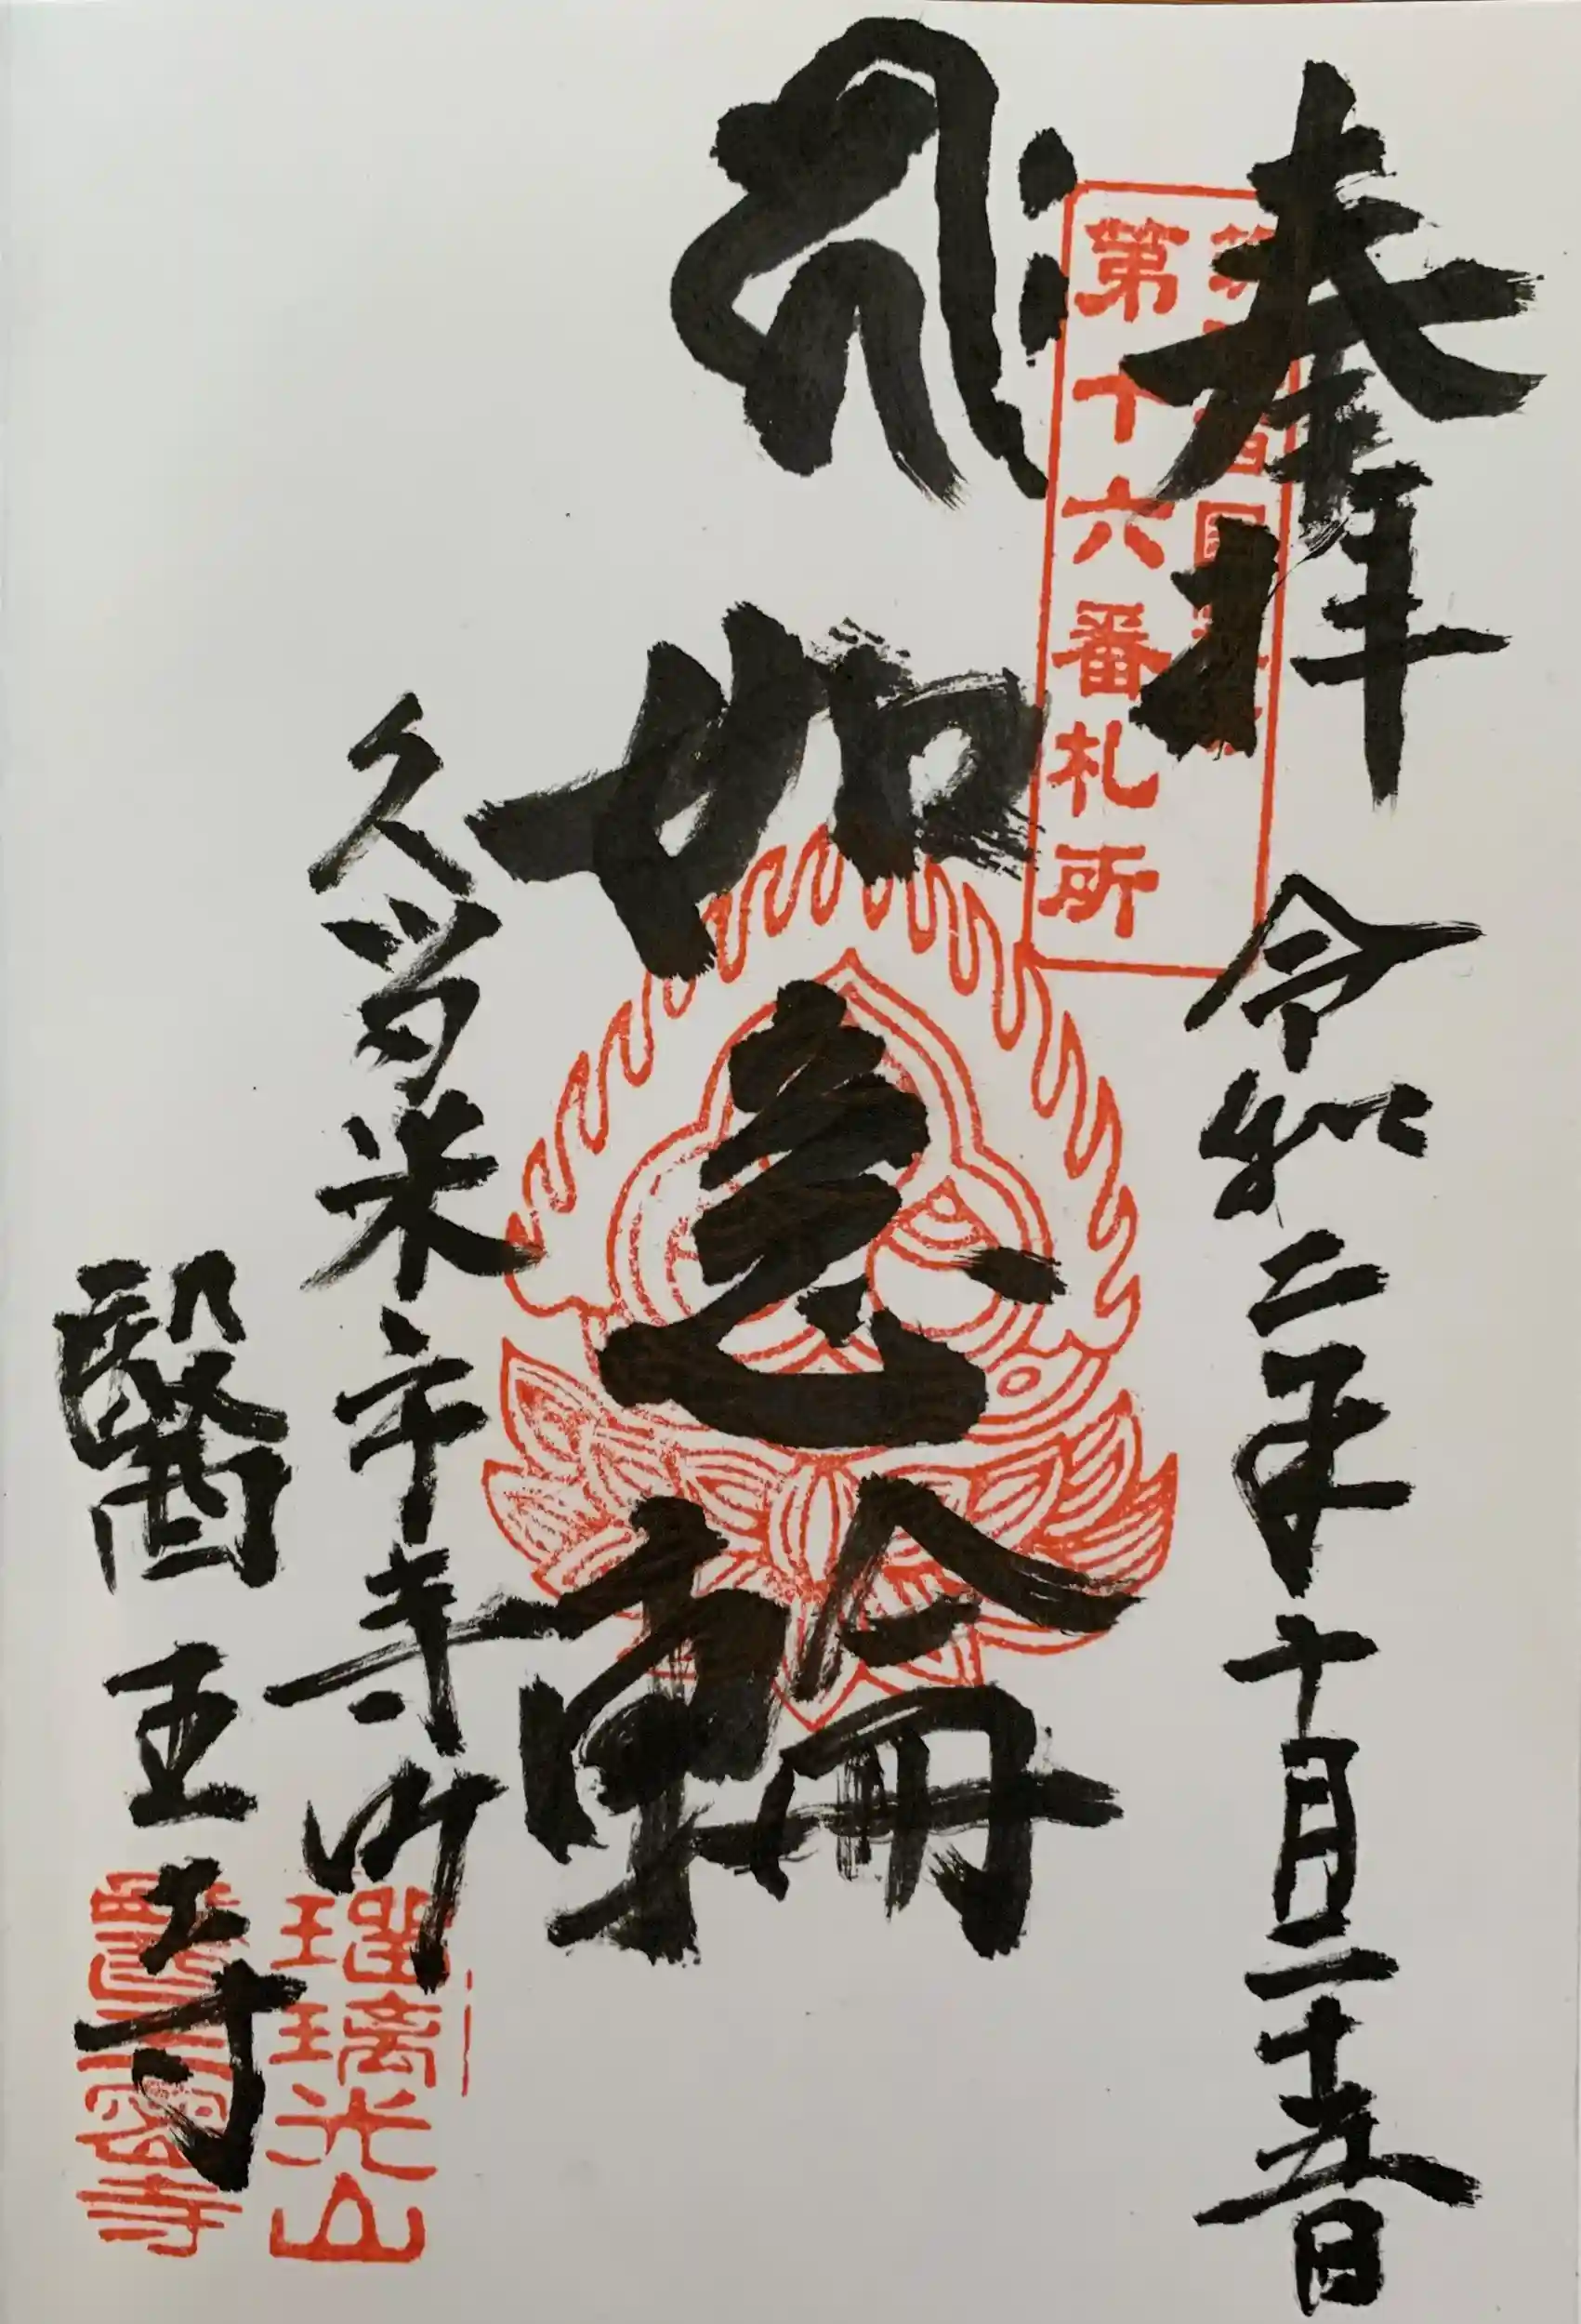 奉拝
令和二年十月二十五日
第十六番札所
如意輪
久留米市寺町
醫王寺
瑠璃光山